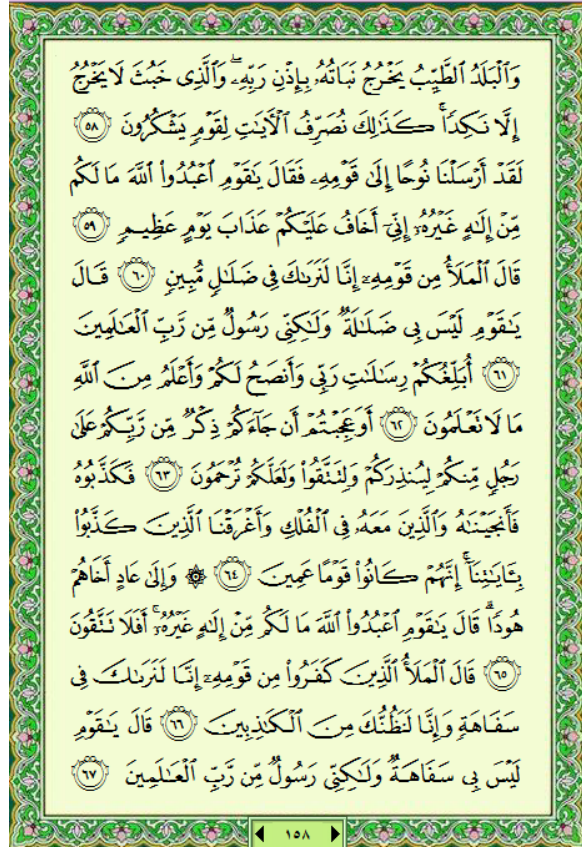 وَٱلْبَلَدُ ٱلطَّيِّبُ يَخْرُجُ نَبَاتُهُۥ بِإِذْنِ رَبِّهِۦ ۖ وَٱلَّذِى خَبُثَ لَا يَخْرُجُ
إِلَّا نَكِدًا ۚ كَذَٰلِكَ نُصَرِّفُ ٱلْـَٔايَٰتِ لِقَوْمٍ يَشْكُرُونَ ٥٨
لَقَدْ أَرْسَلْنَا نُوحًا إِلَىٰ قَوْمِهِۦ فَقَالَ يَٰقَوْمِ ٱعْبُدُوا۟ ٱللَّهَ مَا لَكُم
مِّنْ إِلَٰهٍ غَيْرُهُۥٓ إِنِّىٓ أَخَافُ عَلَيْكُمْ عَذَابَ يَوْمٍ عَظِيمٍ ٥٩
قَالَ ٱلْمَلَأُ مِن قَوْمِهِۦٓ إِنَّا لَنَرَىٰكَ فِى ضَلَٰلٍ مُّبِينٍ ٦٠ قَالَ
يَٰقَوْمِ لَيْسَ بِى ضَلَٰلَةٌ وَلَٰكِنِّى رَسُولٌ مِّن رَّبِّ ٱلْعَٰلَمِينَ
٦١ أُبَلِّغُكُمْ رِسَٰلَٰتِ رَبِّى وَأَنصَحُ لَكُمْ وَأَعْلَمُ مِنَ ٱللَّهِ
مَا لَا تَعْلَمُونَ ٦٢ أَوَعَجِبْتُمْ أَن جَآءَكُمْ ذِكْرٌ مِّن رَّبِّكُمْ عَلَىٰ
رَجُلٍ مِّنكُمْ لِيُنذِرَكُمْ وَلِتَتَّقُوا۟ وَلَعَلَّكُمْ تُرْحَمُونَ ٦٣ فَكَذَّبُوهُ
فَأَنجَيْنَٰهُ وَٱلَّذِينَ مَعَهُۥ فِى ٱلْفُلْكِ وَأَغْرَقْنَا ٱلَّذِينَ كَذَّبُوا۟
بِـَٔايَٰتِنَآ ۚ إِنَّهُمْ كَانُوا۟ قَوْمًا عَمِينَ ٦٤ ۞ وَإِلَىٰ عَادٍ أَخَاهُمْ
هُودًا ۗ قَالَ يَٰقَوْمِ ٱعْبُدُوا۟ ٱللَّهَ مَا لَكُم مِّنْ إِلَٰهٍ غَيْرُهُۥٓ ۚ أَفَلَا تَتَّقُونَ
٦٥ قَالَ ٱلْمَلَأُ ٱلَّذِينَ كَفَرُوا۟ مِن قَوْمِهِۦٓ إِنَّا لَنَرَىٰكَ فِى
سَفَاهَةٍ وَإِنَّا لَنَظُنُّكَ مِنَ ٱلْكَٰذِبِينَ ٦٦ قَالَ يَٰقَوْمِ
لَيْسَ بِى سَفَاهَةٌ وَلَٰكِنِّى رَسُولٌ مِّن رَّبِّ ٱلْعَٰلَمِينَ ٦٧
١٥٨